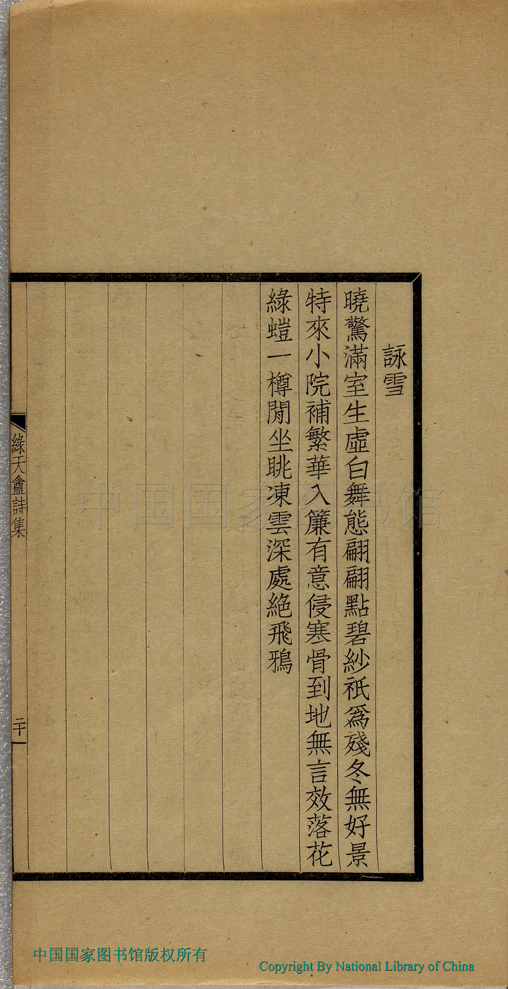 詠雪
曉驚滿室生虛白舞態翩翩點碧紗祇爲殘冬無好景
特來小院補繁華入簾有意侵寒骨到地無言效落花
綠螘一樽閒坐眺凍雲深處絶飛鴉
綠天盦詩集
二十
中国国家图书馆
中国国家图书馆版权所有
Copyright By National Library of China